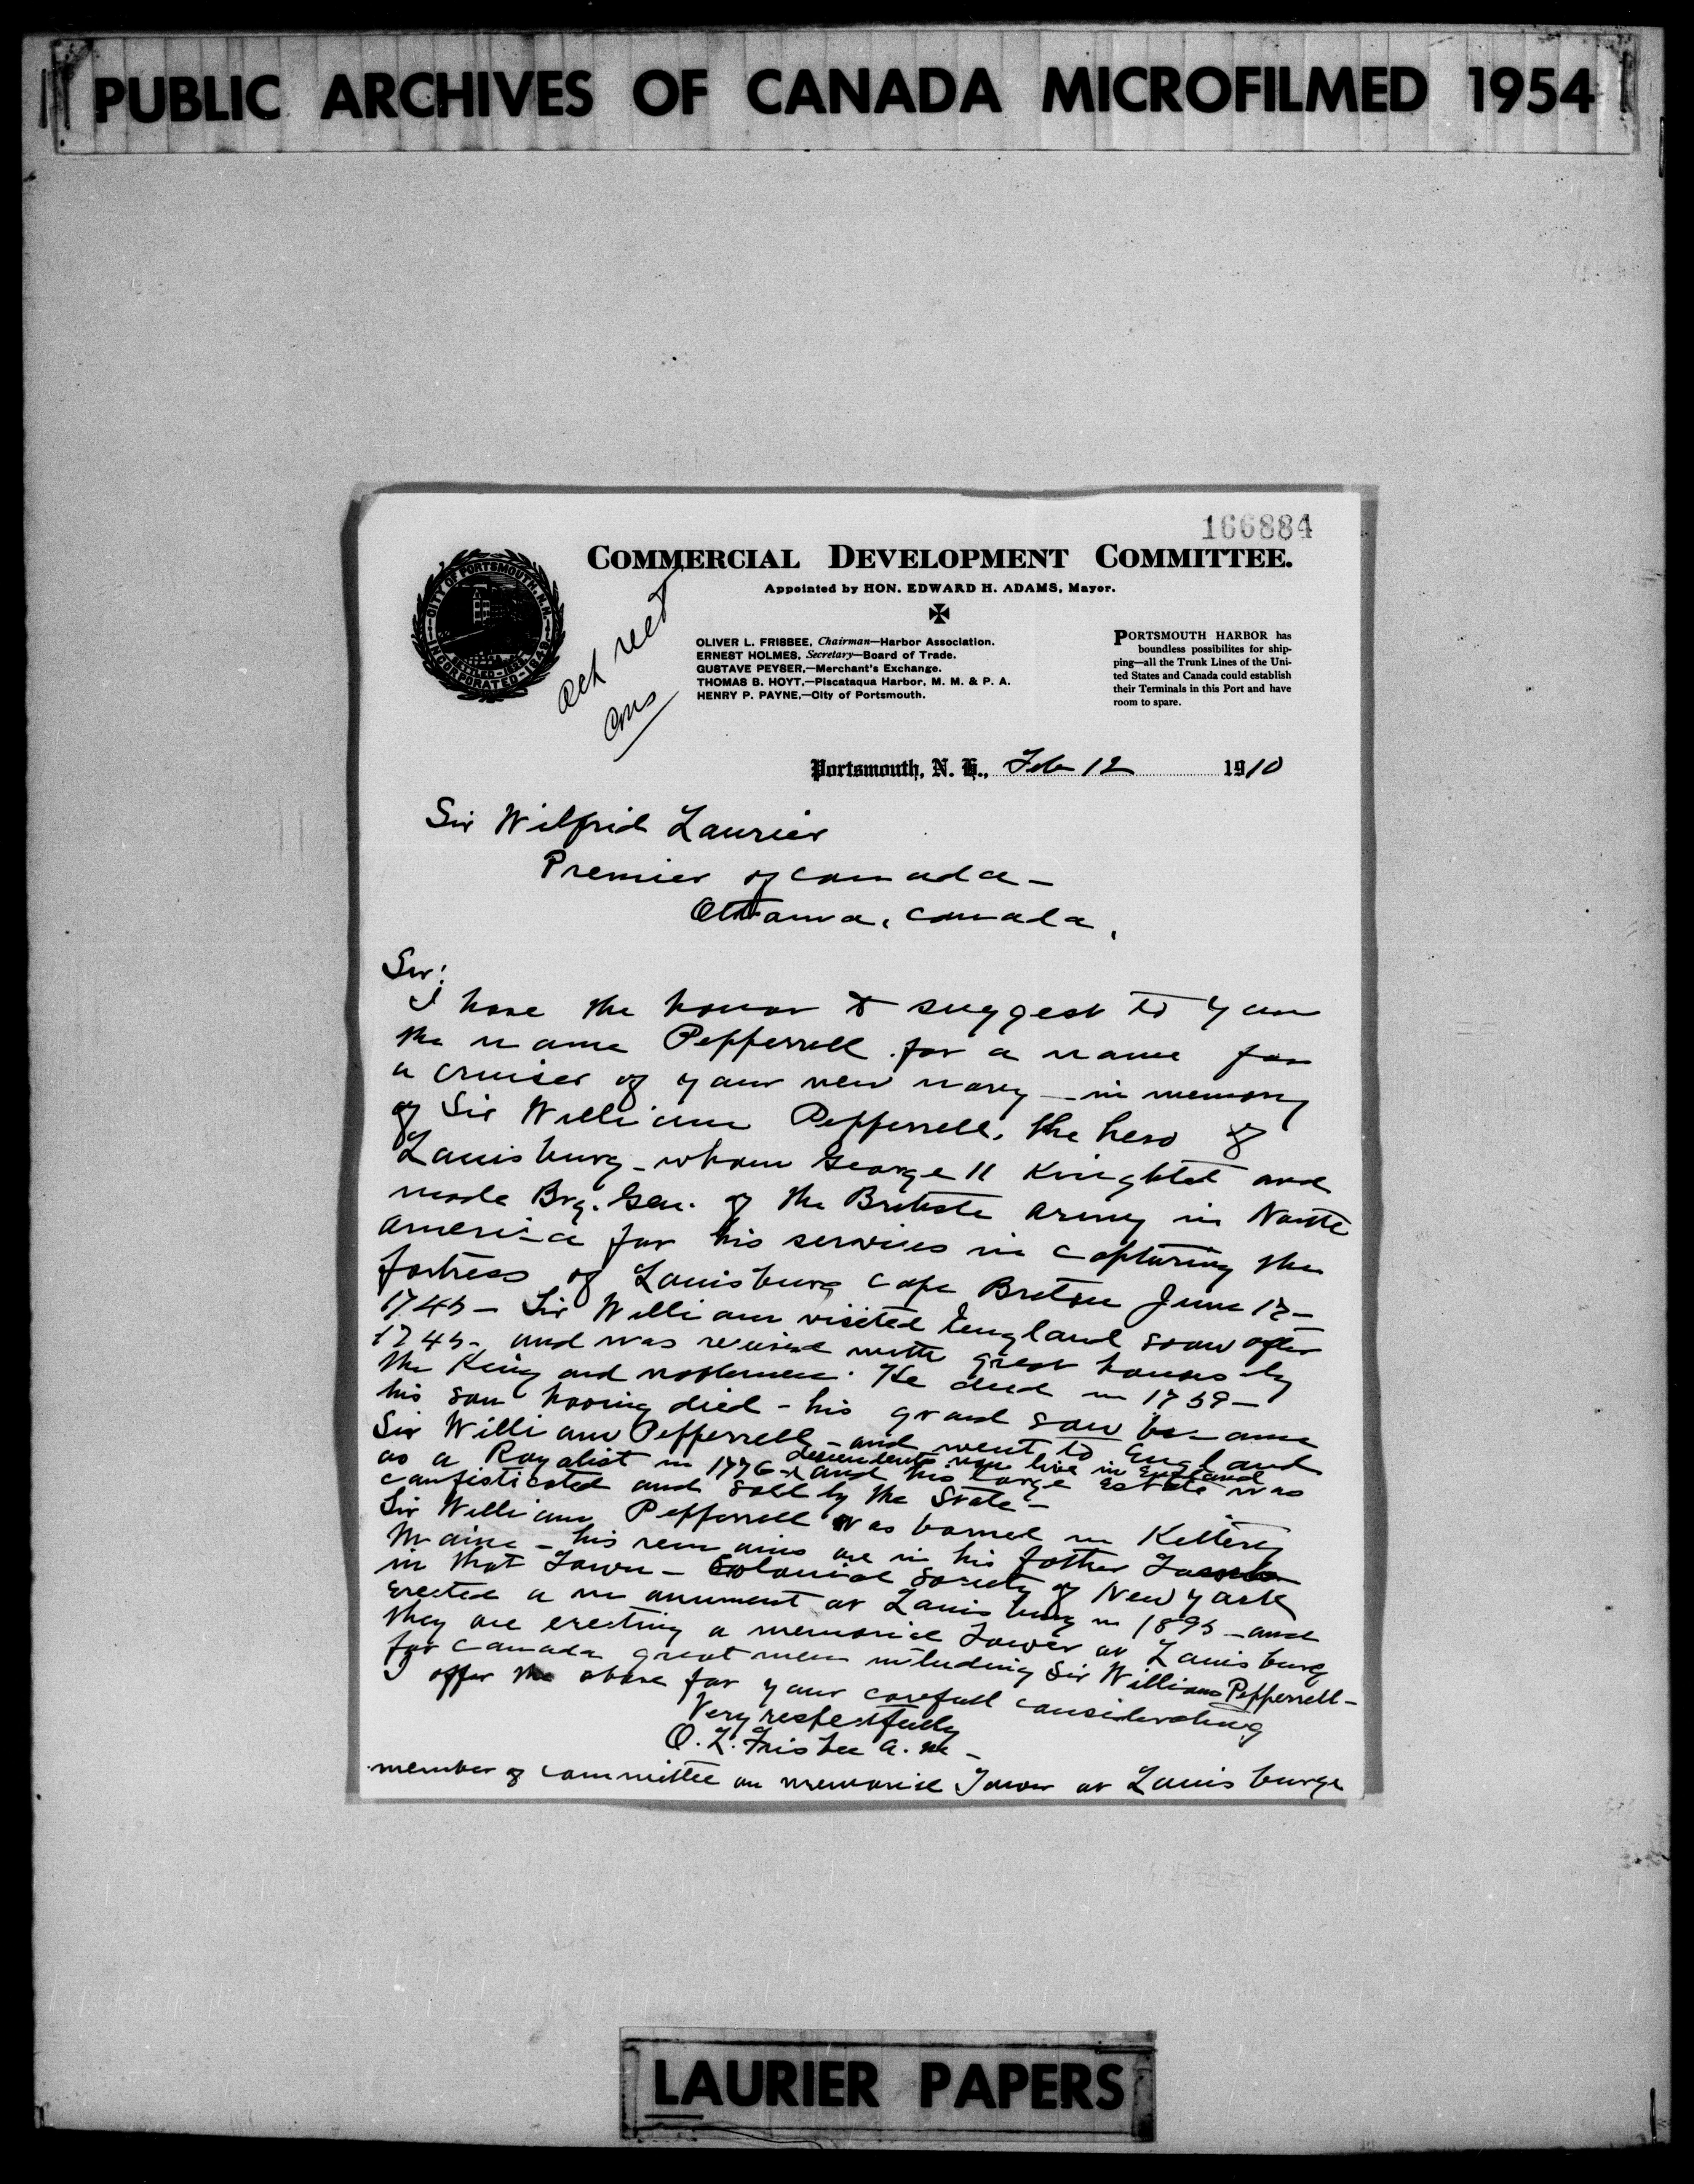 PUBLIC ARCHIVES OF CANADA MICROFILMED 1954
166884
COMMERCIAL DEVELOPMENT COMMITTEE.
Appointed by HON. EDWARD H. ADAMS, Mayor.
CITY OF PORTSMOUTH, N.H.
INCORPORATED-1849
OLIVER L. FRISBEE, Chairman—Harbor Association.
ERNEST HOLMES, Secretary—Board of Trade.
GUSTAVE PEYSER,—Merchant's Exchange.
THOMAS B. HOYT,—Piscataqua Harbor, M. M. & P. A.
HENRY P. PAYNE,—City of Portsmouth.
PORTSMOUTH HARBOR has
boundless possibilites for ship-
ping—all the Trunk Lines of the Uni-
ted States and Canada could establish
their Terminals in this Port and have
room to spare.
Portsmouth, N. H., Feb 12 1910
Sir Wilfrid Laurier
Premier of Canada -
Ottawa, Canada,
Sir:
I have the honor to suggest to you
the name Pepperrell for a name for
a cruiser of your new navy - in memory
of Sir William Pepperrell, the hero of
Louisburg - whom George II Knighted and
made Brg. Gen. of the British Army in North
America for his services in capturing the
fortress of Louisburg Cape Breton June 17 -
1745 - Sir William visited England soon after
1745 - and was received with great honors by
the King and noblemen. He died in 1759 -
his son having died - his grand son became
Sir William Pepperrell - and went to England
as a Royalist in 1776 - descendents now live in England and his large estate was
confisticated and sold by the State -
Sir William Pepperrell was borned in Kittery
Maine - his remains are in his father
in that Town - Colonial Society of New York
erected a monument at Louisburg in 1895 - and
they are erecting a memorial Tower at Louisburg
for Canada great men including Sir William Pepperrell -
I offer the above for your carefull considerating
Very respectfully
O. L. Frisbee A. M -
member of committee on memorial Tower at Louisburge
LAURIER PAPERS